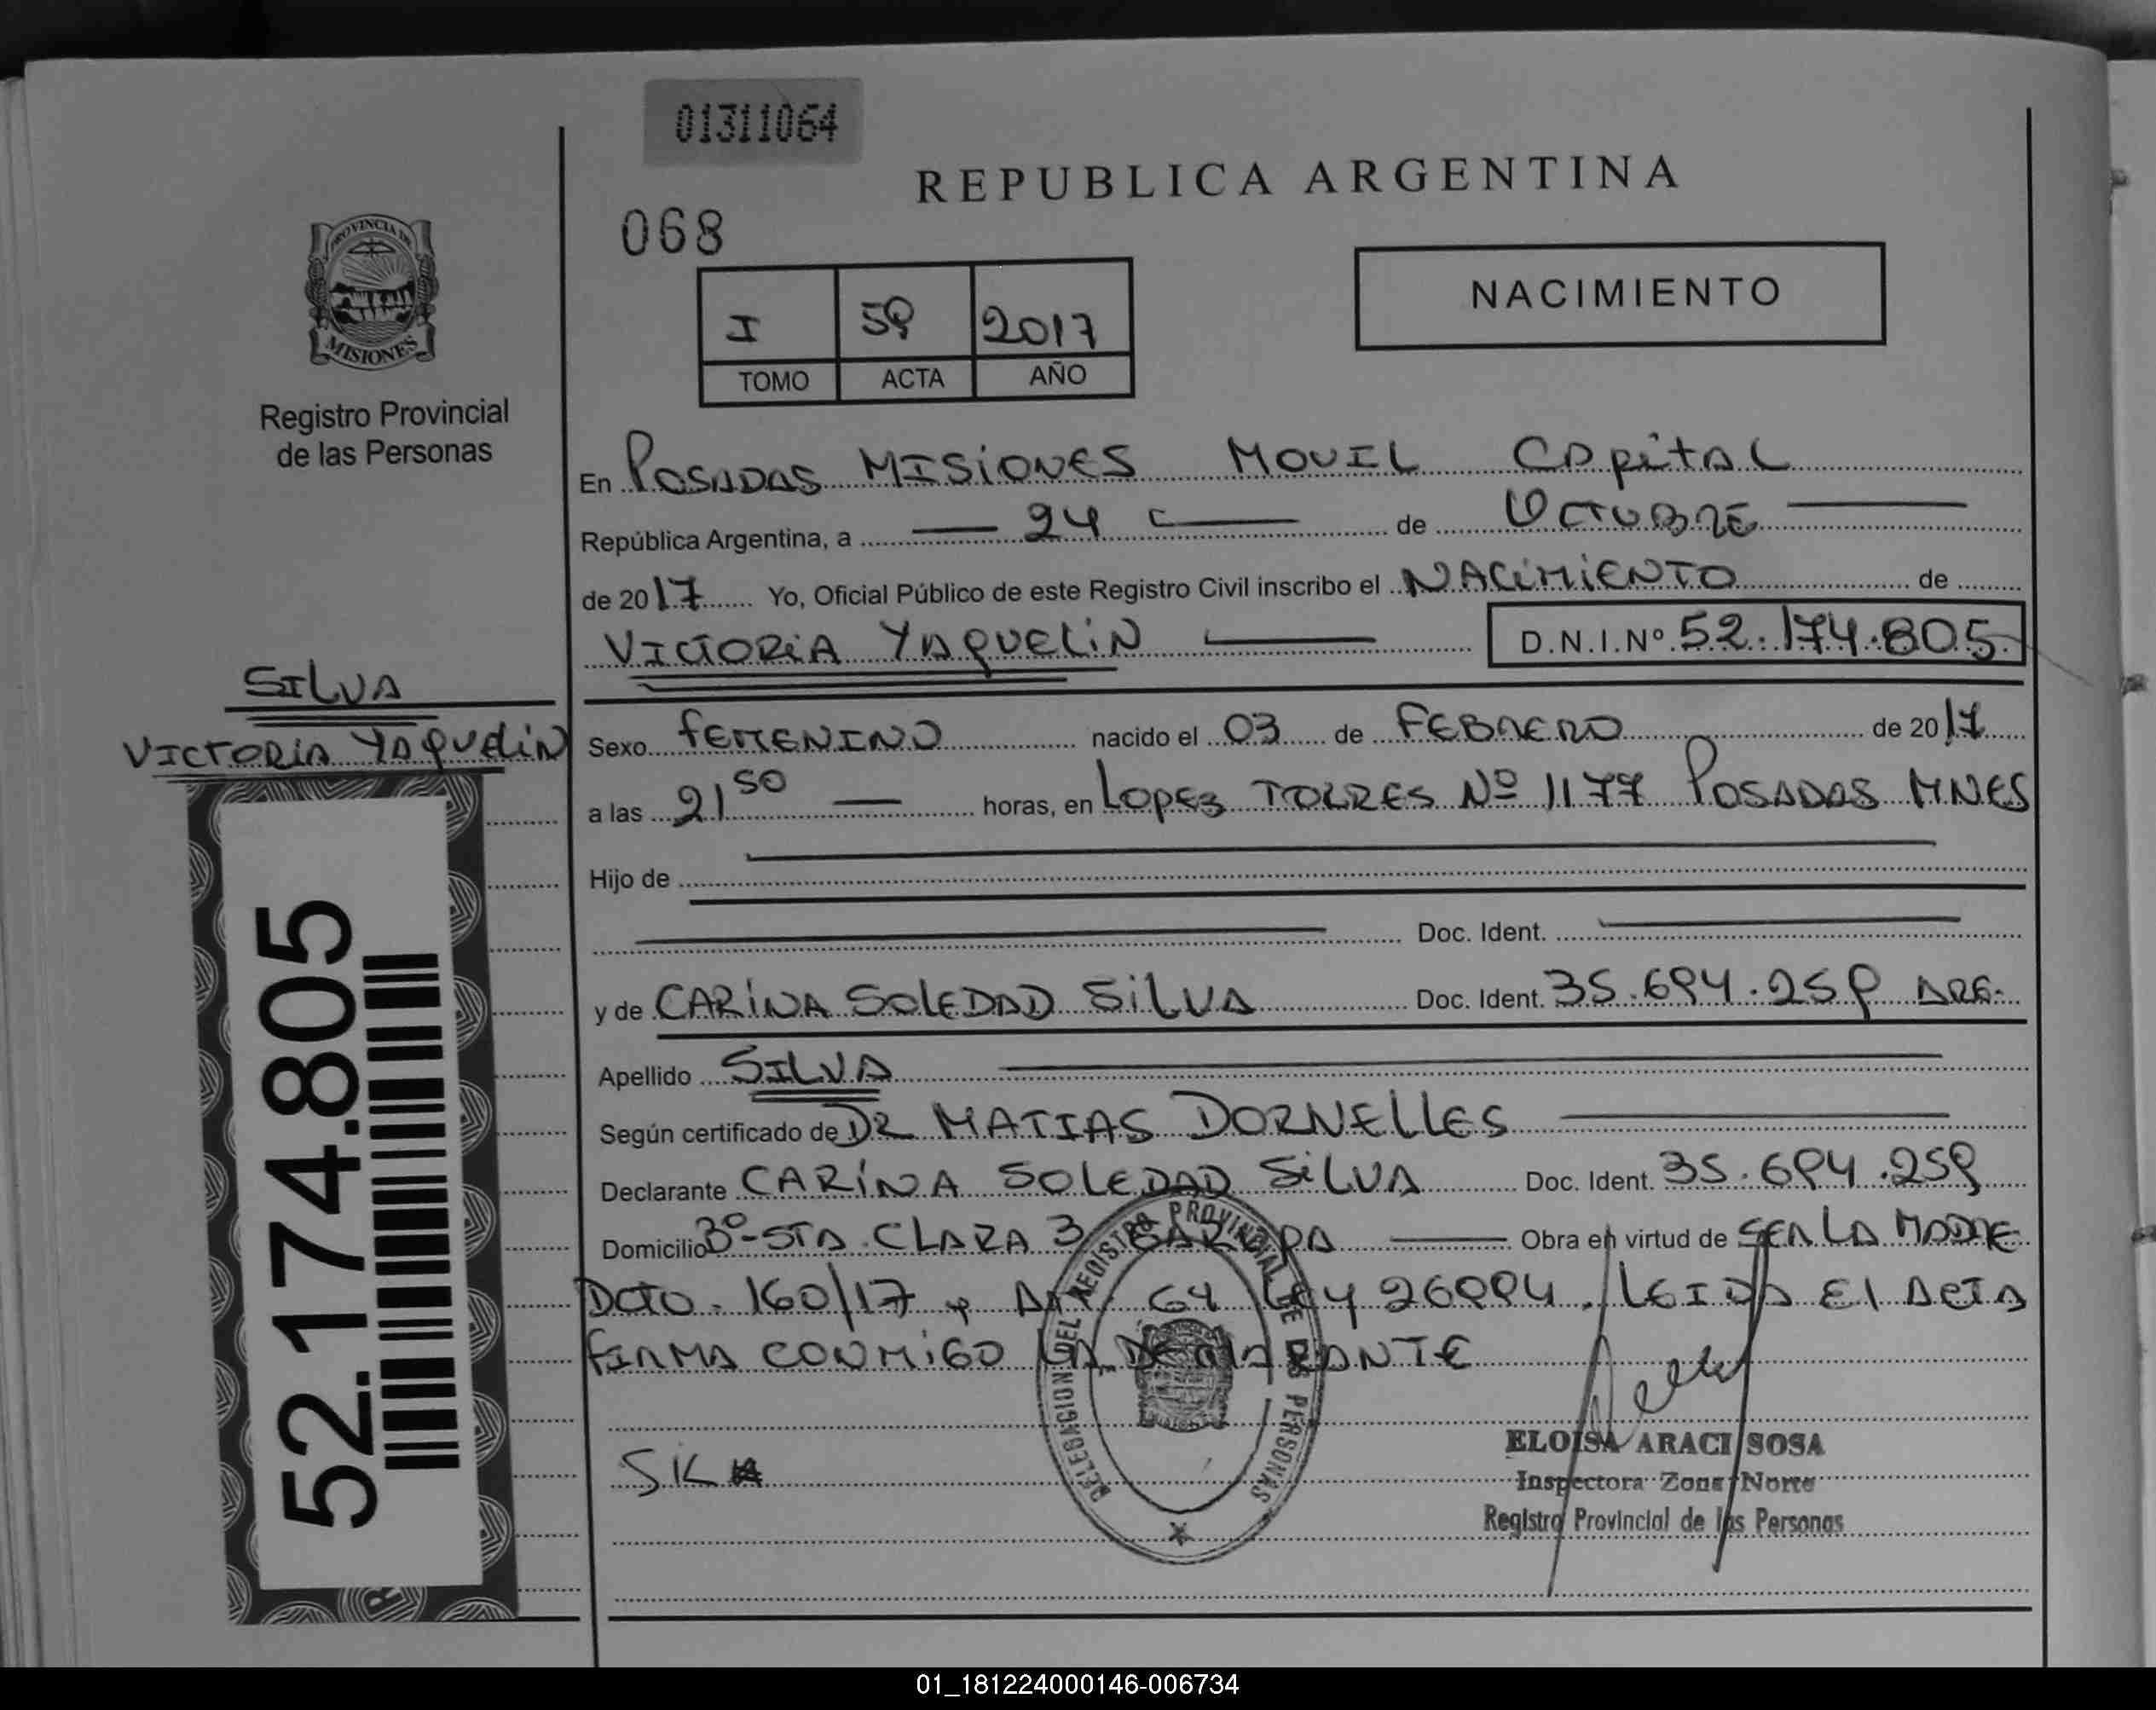 01311064
REPUBLICA ARGENTINA
068
NACIMIENTO
I 59 2017
TOMO ACTA AÑO
PROVINCIA DE
MISIONES
Registro Provincial
de las Personas
En POSADAS MISIONES MOVIL CAPITAL
República Argentina, a 24 de OCTUBRE
de 2017 Yo, Oficial Público de este Registro Civil inscribo el NACIMIENTO de
VICTORIA YAQUELIN D.N.I.Nº 52.174.805
SILVA
VICTORIA YAQUELIN
Sexo FEMENINO nacido el 03 de FEBRERO de 2017
a las 21 50 horas, en LOPEZ TORRES Nº 1177 POSADAS MNES
Hijo de
Doc. Ident.
y de CARINA SOLEDAD SILVA Doc. Ident. 35.694.259 ARG.
Apellido SILVA
Según certificado de DR MATIAS DORNELLES
Declarante CARINA SOLEDAD SILVA Doc. Ident. 35.694.259
Domicilio Bº-STA CLARA 3 Obra en virtud de SER LA MADRE
DCTO. 160/17 y ART 64 LEY 26994. LEIDA El ACTA
FIRMA CONMIGO LA DECLARANTE
52.174.805
DELEGACION DEL REGISTRO PROVINCIAL DE LAS PERSONAS
ELOISA ARACI SOSA
Inspectora Zona Norte
Registro Provincial de las Personas
01_181224000146-006734